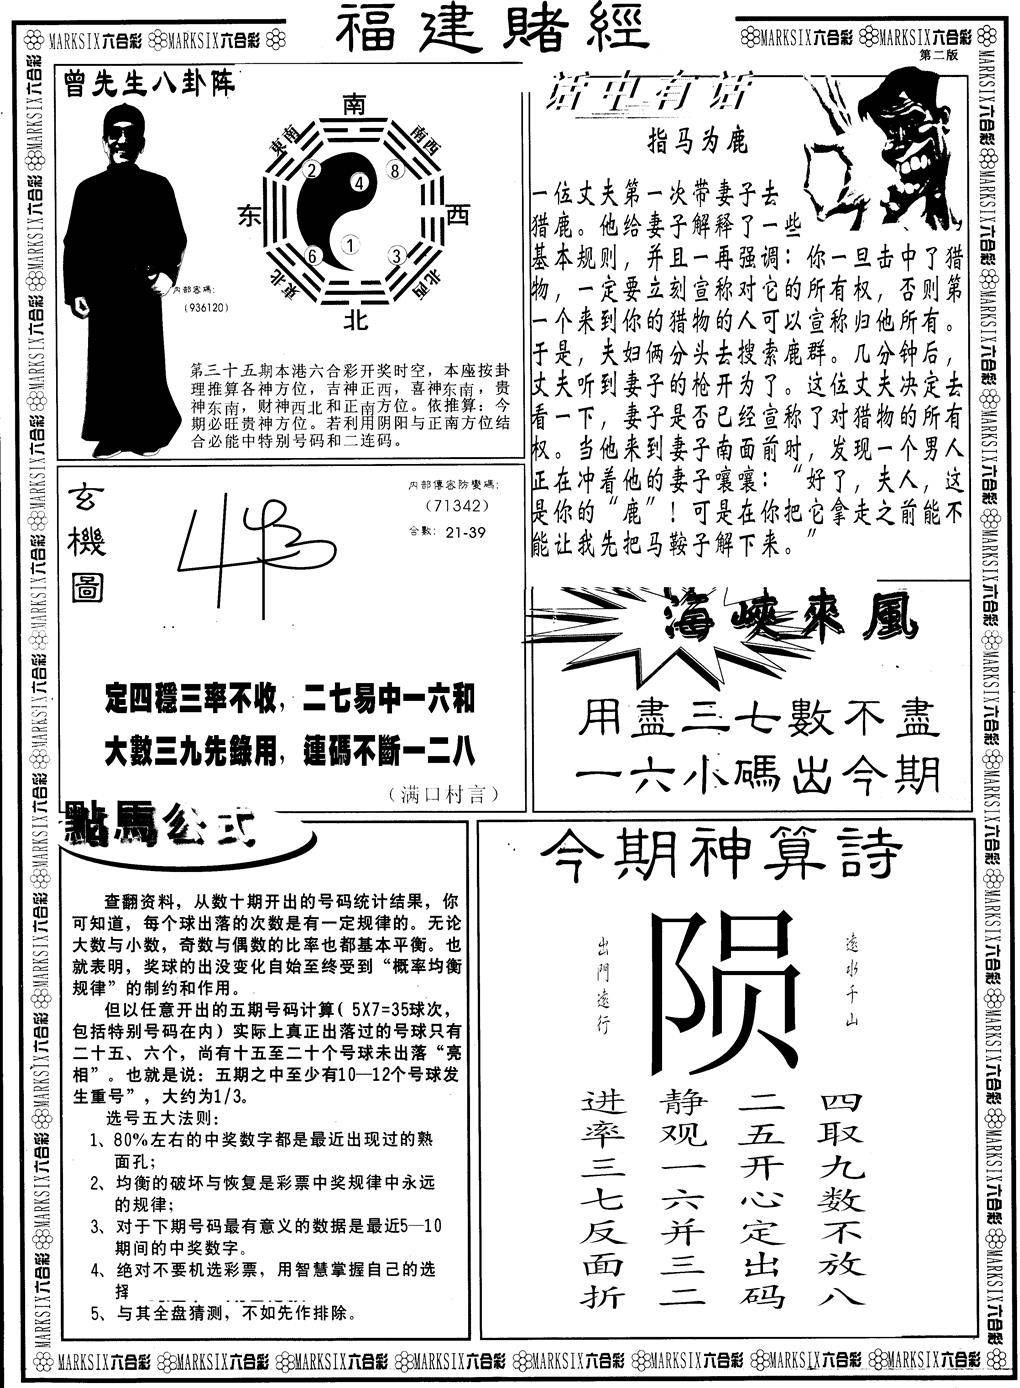 福建賭經
MARKSIX六合彩 MARKSIX六合彩
MARKSIX六合彩 MARKSIX六合彩
第二版
曾先生八卦阵
南
東南 南西
2 4 8
东 西
6 1 3
東北 北西
北
内部密碼:
(936120)
第三十五期本港六合彩开奖时空，本座按卦
理推算各神方位，吉神正西，喜神东南，贵
神东南，财神西北和正南方位。依推算：今
期必旺贵神方位。若利用阴阳与正南方位结
合必能中特别号码和二连码。
话中有话
指马为鹿
一位丈夫第一次带妻子去
猎鹿。他给妻子解释了一些
基本规则，并且一再强调：你一旦击中了猎
物，一定要立刻宣称对它的所有权，否则第
一个来到你的猎物的人可以宣称归他所有。
于是，夫妇俩分头去搜索鹿群。几分钟后，
丈夫听到妻子的枪开为了。这位丈夫决定去
看一下，妻子是否已经宣称了对猎物的所有
权。当他来到妻子南面前时，发现一个男人
正在冲着他的妻子嚷嚷：“好了，夫人，这
是你的“鹿”！可是在你把它拿走之前能不
能让我先把马鞍子解下来。”
玄機圖
内部傳密防變碼:
(71342)
合數: 21-39
定四穩三率不收，二七易中一六和
大數三九先錄用，連碼不斷一二八
（满口村言）
海峽來風
用盡三七數不盡
一六小碼出今期
點馬公式
查翻资料，从数十期开出的号码统计结果，你
可知道，每个球出落的次数是有一定规律的。无论
大数与小数，奇数与偶数的比率也都基本平衡。也
就表明，奖球的出没变化自始至终受到“概率均衡
规律”的制约和作用。
但以任意开出的五期号码计算( 5X7=35球次，
包括特别号码在内) 实际上真正出落过的号球只有
二十五、六个，尚有十五至二十个号球未出落“亮
相”。也就是说：五期之中至少有10—12个号球发
生重号”，大约为1/3。
选号五大法则：
1、80%左右的中奖数字都是最近出现过的熟
面孔；
2、均衡的破坏与恢复是彩票中奖规律中永远
的规律；
3、对于下期号码最有意义的数据是最近5—10
期间的中奖数字。
4、绝对不要机选彩票，用智慧掌握自己的选
择
5、与其全盘猜测，不如先作排除。
今期神算詩
陨
遠水千山
出門遠行
四取九数不放八
二五开心定出码
静观一六并三二
进率三七反面折
MARKSIX六合彩 MARKSIX六合彩 MARKSIX六合彩 MARKSIX六合彩 MARKSIX六合彩 MARKSIX六合彩 MARKSIX六合彩 MARKSIX六合彩